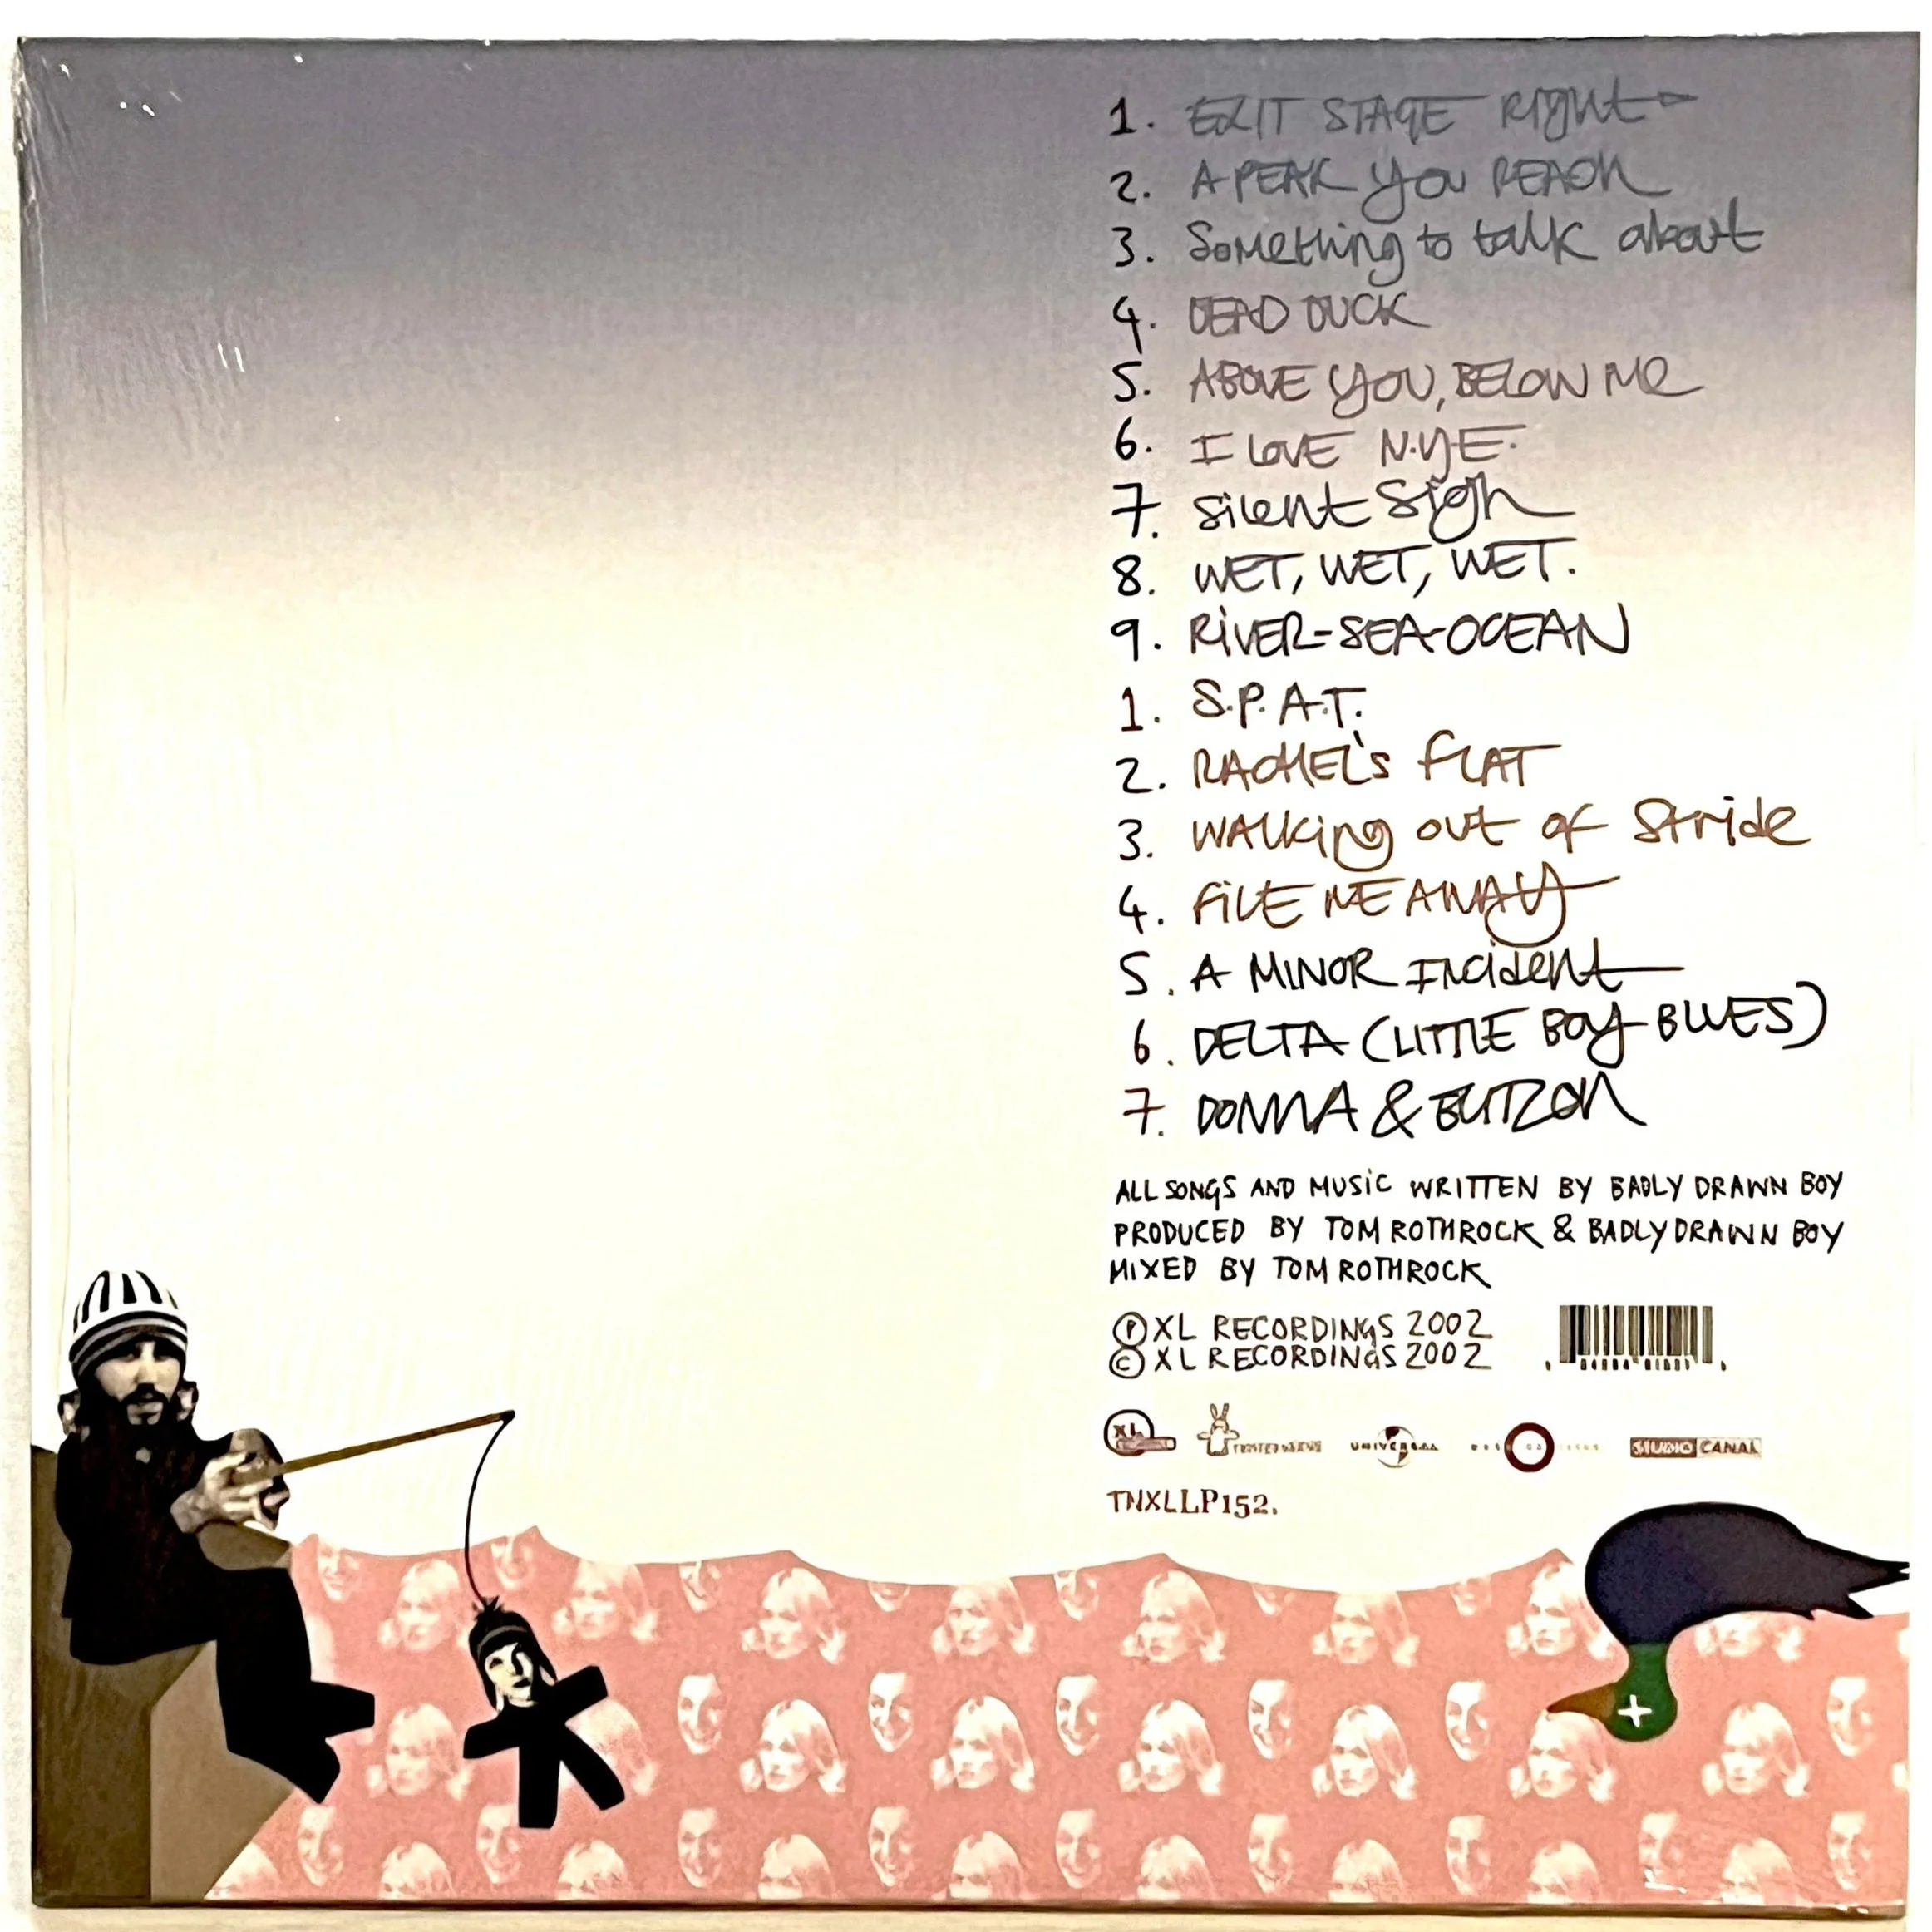 1. EXIT STAGE RIGHT
2. A PEAK YOU REACH
3. Something to talk about
4. DEAD DUCK
5. ABOVE YOU, BELOW Me
6. I LOVE N.Y.E.
7. Silent Sigh
8. WET, WET, WET.
9. RiVER-SEA-OCEAN
1. S.P.A.T.
2. RACHEL's FLAT
3. WALKing out of Stride
4. FiLE ME AWAY
5. A MINOR Incident
6. DELTA (LITTLE BOY BLUES)
7. DONNA & BLITZEN
ALL SONGS AND MUSIC WRITTEN BY BADLY DRAWN BOY
PRODUCED BY TOM ROTHROCK & BADLY DRAWN BOY
MIXED BY TOM ROTHROCK
Ⓟ XL RECORDINGS 2002
© XL RECORDINGS 2002
XL TWISTED NERVE UNIVERSAL STUDIO CANAL
TNXLLP152.